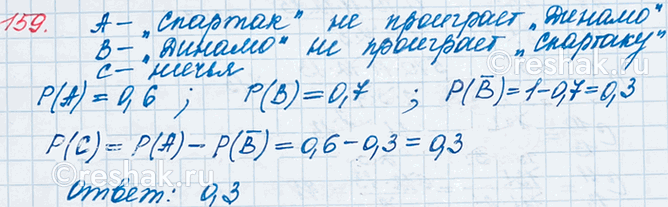 159. А – „Спартак" не проиграет „Динамо"
В – „Динамо" не проиграет „Спартаку"
С – ничья
P(A) = 0,6 ; P(B) = 0,7 ; P(B̅) = 1-0,7=0,3
P(C) = P(A) – P(B̅) = 0,6 – 0,3 = 0,3
Ответ: 0,3
reshak.ru